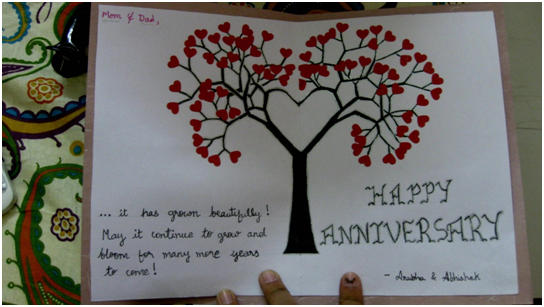 Mom & Dad,
... it has grown beautifully!
May it continue to grow and
bloom for many more years
to come!
HAPPY
ANNIVERSARY
- Anubha & Abhishek